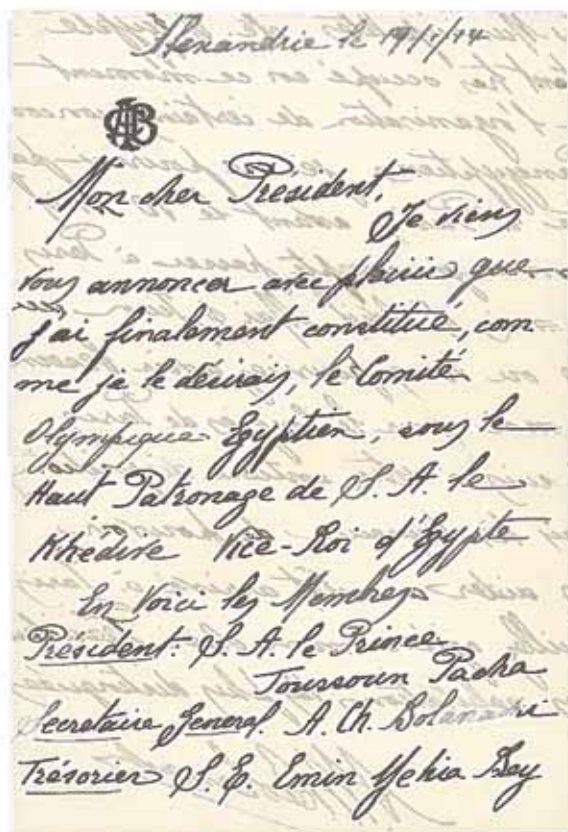 Alexandrie le 19/1/14
Mon cher Président,
Je viens
vous annoncer avec plaisir que
j'ai finalement constitué, com
me je le désirais, le Comité
Olympique Egyptien, sous le
Haut Patronage de S. A. le
Khédive Vice-Roi d'Egypte
En Voici les Membres
Président: S. A. le Prince
Toussoun Pacha
Secretaire General. A. Ch. Bolanachi
Trésorier S. E. Emin Yehia Bey